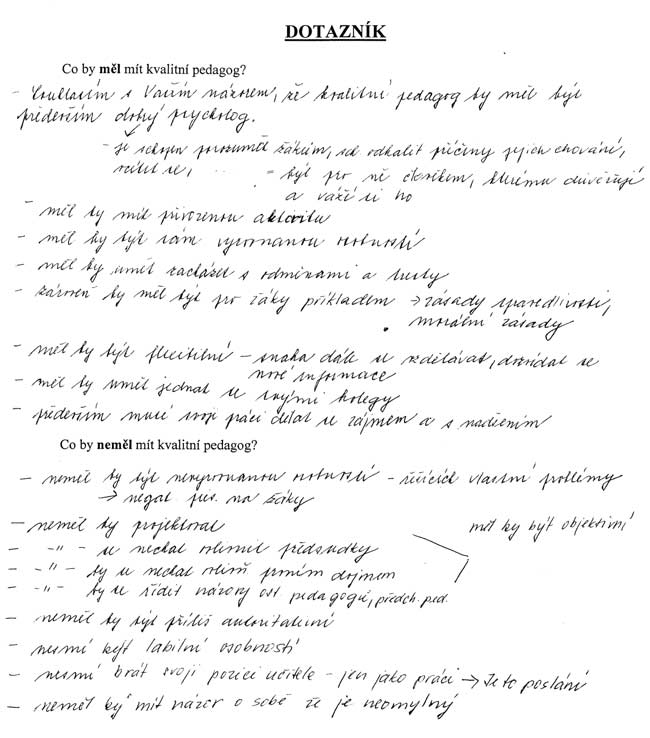 DOTAZNÍK
Co by měl mít kvalitní pedagog?
- Souhlasím s Vaším názorem, že kvalitní pedagog by měl být
především dobrý psycholog.
- je schopen porozumět žákům, sch. odhalit příčiny jejich chování,
vcítit se, - být pro ně člověkem, kterému důvěřují
a váží si ho
- měl by mít přirozenou autoritu
- měl by být sám vyrovnanou osobností
- měl by umět zacházet s odměnami a tresty
- zároveň by měl být pro žáky příkladem → zásady spravedlivosti,
morální zásady
- měl by být flexibilní - snaha dále se vzdělávat, dozvídat se
nové informace
- měl by umět jednat se svými kolegy
- především musí svoji práci dělat se zájmem a s nadšením
Co by neměl mít kvalitní pedagog?
- neměl by být nevyrovnanou osobností - řešících vlastní problémy
→ negat. půs. na žáky
- neměl by projektovat
měl by být objektivní
- -"- se nechat ovlivnit předsudky
- -"- by se nechat ovlivň prvním dojmem
- -"- by se řídit názory ost. pedagogů, předch. ped.
- neměl by být příliš autoritativní
- nesmí být labilní osobností
- nesmí brát svoji pozici učitele - jen jako práci → Je to poslání
- neměl by mít názor o sobě že je neomylný